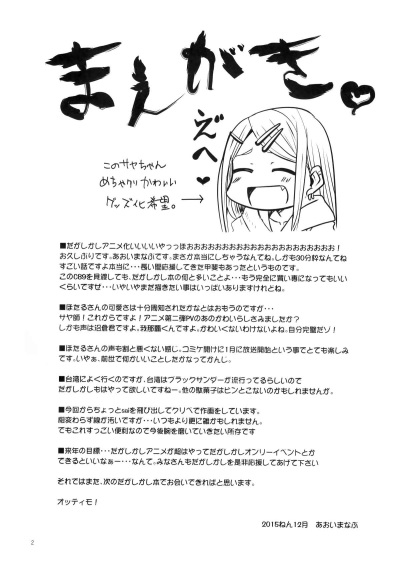 まえがき。♡
えへ♡
このサヤちゃん
めちゃクソかわいい
グッズ化希望。→
■だがしかしアニメ化いいいいやっっほおおおおおおおおおおおおおおおおおおおおお!
お久しぶりです。あおいまなぶです。まさか本当にしちゃうなんてね。しかも30分枠なんてね。
すごい話ですよ本当に・・・長い間応援してきた甲斐もあったというものです。
このC89を見渡しても、だがしかし本の何と多いことよ・・・もう完全に買い専になってもいい
くらいですせ・・・いやいやまだ描きたい事はいっぱいありますけれどね。
■ほたるさんの可愛さは十分周知されたかなとはおもうのですが・・・
サヤ師!これからですよ!アニメ第二弾PVのあのかわいらしさみましたか?
しかも声は沼倉君ですよ。我那覇くんですよ。かわいくないわけないよね。自分完璧だソ!
■ほたるさんの声も割と悪くない感じ。コミケ開けに1月に放送開始という事でとても楽しみ
です。いやぁ、前世で何かいいことしたかなってかんじ。
■台湾によく行くのですが、台湾はブラックサンダーが流行ってるらしいので
だがしかしもはやって欲しいですねー。他の駄菓子はピンとこないのかもしれませんが。
■今回からちょっとsaiを飛び出してクリペで作画をしています。
相変わらず線が汚いですが・・・いつもより更に雑かもしれません。
でもこれすっごい便利なので今後腕を磨いていきたい所存です
■来年の目標・・・だがしかしアニメが超はやってだがしかしオンリーイベントとか
できるといいなぁー・・・なんて。みなさんもだがしかしを是非応援してあげて下さい
それではまた、次のだがしかし本でお会いできればと思います。
オッティモ!
2015ねん12月 あおいまなぶ
2